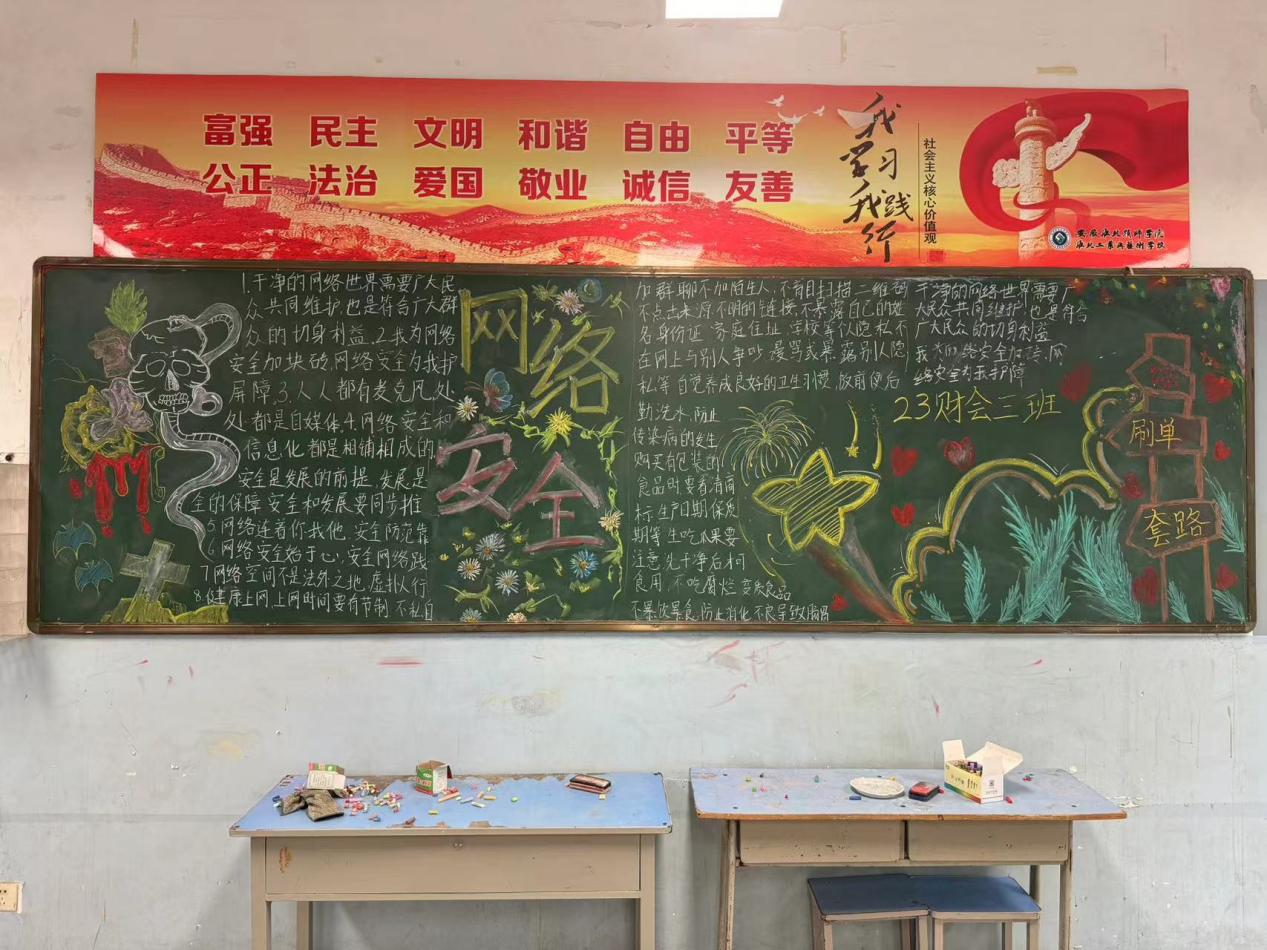 富强 民主 文明 和谐 自由 平等
公正 法治 爱国 敬业 诚信 友善
我学习
我践行
社会主义核心价值观
1.干净的网络世界需要广大民
众共同维护,也是符合广大群
众的切身利益.2.我为网络
安全加块砖,网络安全为我护
屏障.3.人人都有麦克风,处
处都是自媒体4.网络安全和
信息化都是相辅相成的
安全是发展的前提,发展是
全的保障,安全和发展要同步推
5网络连着你我他,安全防范靠
6.网络安全始于心,安全网络践
7网络空间不是法外之地,虚拟人行
8.健康上网,上网时间要有节制 不私自
网络
安全
加群聊不加陌生人,不盲目扫描二维码
不点击来源不明的链接,不暴露自己的姓
名身份证 家庭住址 学校等以隐私不
在网上与别人争吵 漫骂或暴露别人隐
私等 自觉养成良好的卫生习惯,放前便后
勤洗水,防止
传染病的发生
购买有包装的
食品时,要看清商
标,生产日期,保质
期等,生吃瓜果要
注意,先干净后才可
食用,不吃腐烂变质食品
不暴饮暴食,防止消化不良导致腹
干净的网络世界需要广
大民众共同维护,也是符合
广大民众的切身利益
23财会三班
刷单
套路